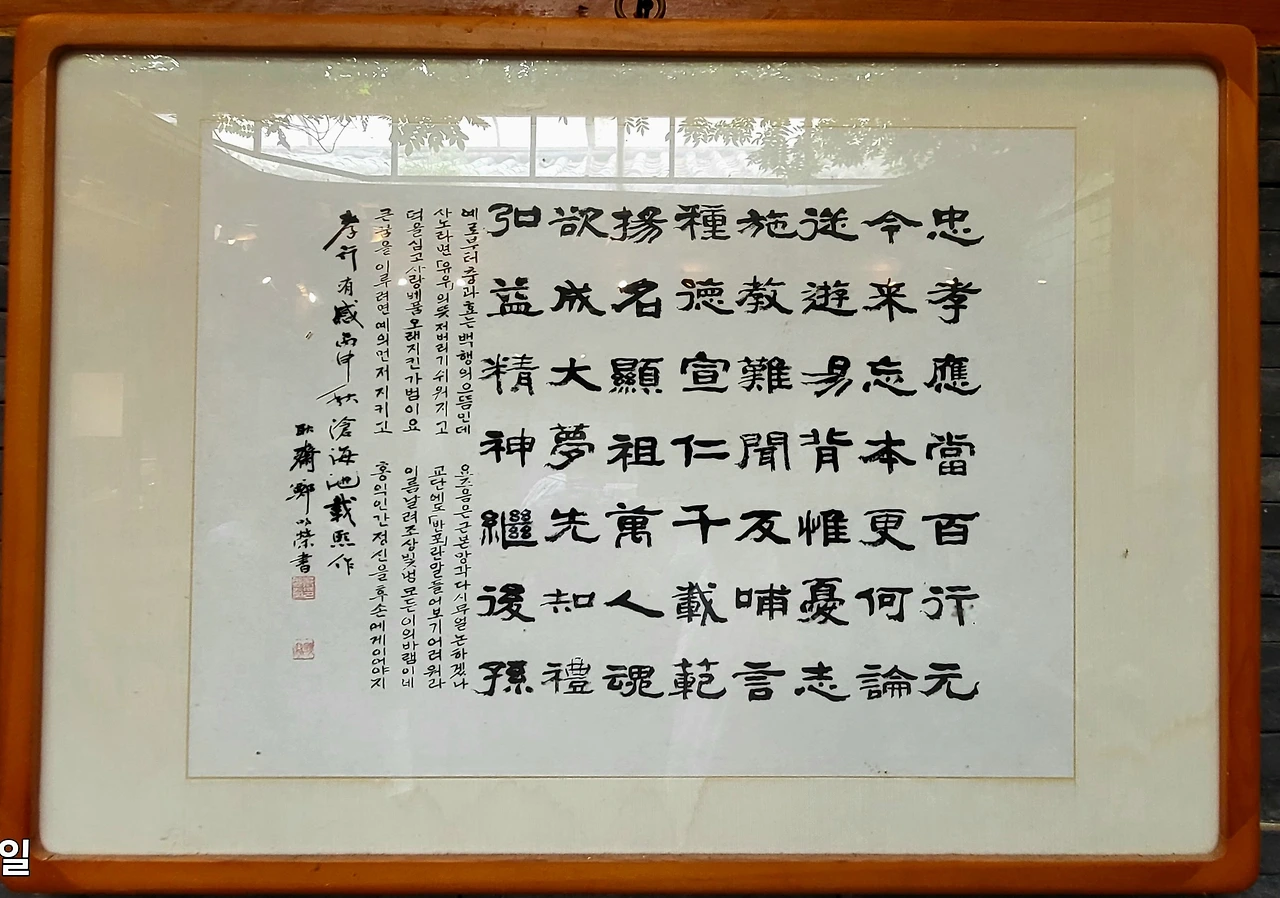 忠孝應當百行元
今来忘本更何論
從遊易背惟憂志
施教難聞反哺言
種德宣仁千載範
揚名顯祖萬人魂
欲成大夢先知禮
弘益精神繼後孫
예로부터 충과 효는 백행의 으뜸인데 요즈음은 근본 망각 다시 무얼 논하겠나
사노라면 「유우」의 뜻 저버리기 쉬워지고 교단에도 「반포」란 말 들어보기 어려워라
덕을 심고 사랑 베풂 오래 지킨 가범이요 이름 날려 조상 빛냄 모든 이의 바램이네
큰 꿈을 이루려면 예의 먼저 지키고 홍익인간 정신을 후손에게 이어야지
孝行有感 丙申秋 滄海池載熙作
齋鄭榮書
일